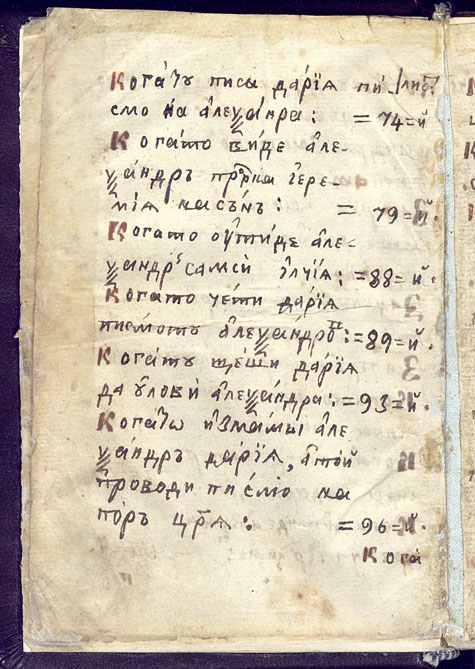 Когату писа дарїѧ пи листъ
смо на алеѯандра: =74=й
Когато виде але-
ѯандръ пррка їере-
мїѧ насънъ: = 79=й.
Когато оутиде але-
ѯандръ самси ѡлчїѧ: =88=й.
Когато чети дарїѧ
писмоть алеѯандрӱ: =89=й.
Когату щеши дарїѧ
да улови алеѯандра: =93=й.
Когато измамы але
ѯандръ дарїѧ, атой
проводи писмо на
поръ црѧ: =96=й.
Кога